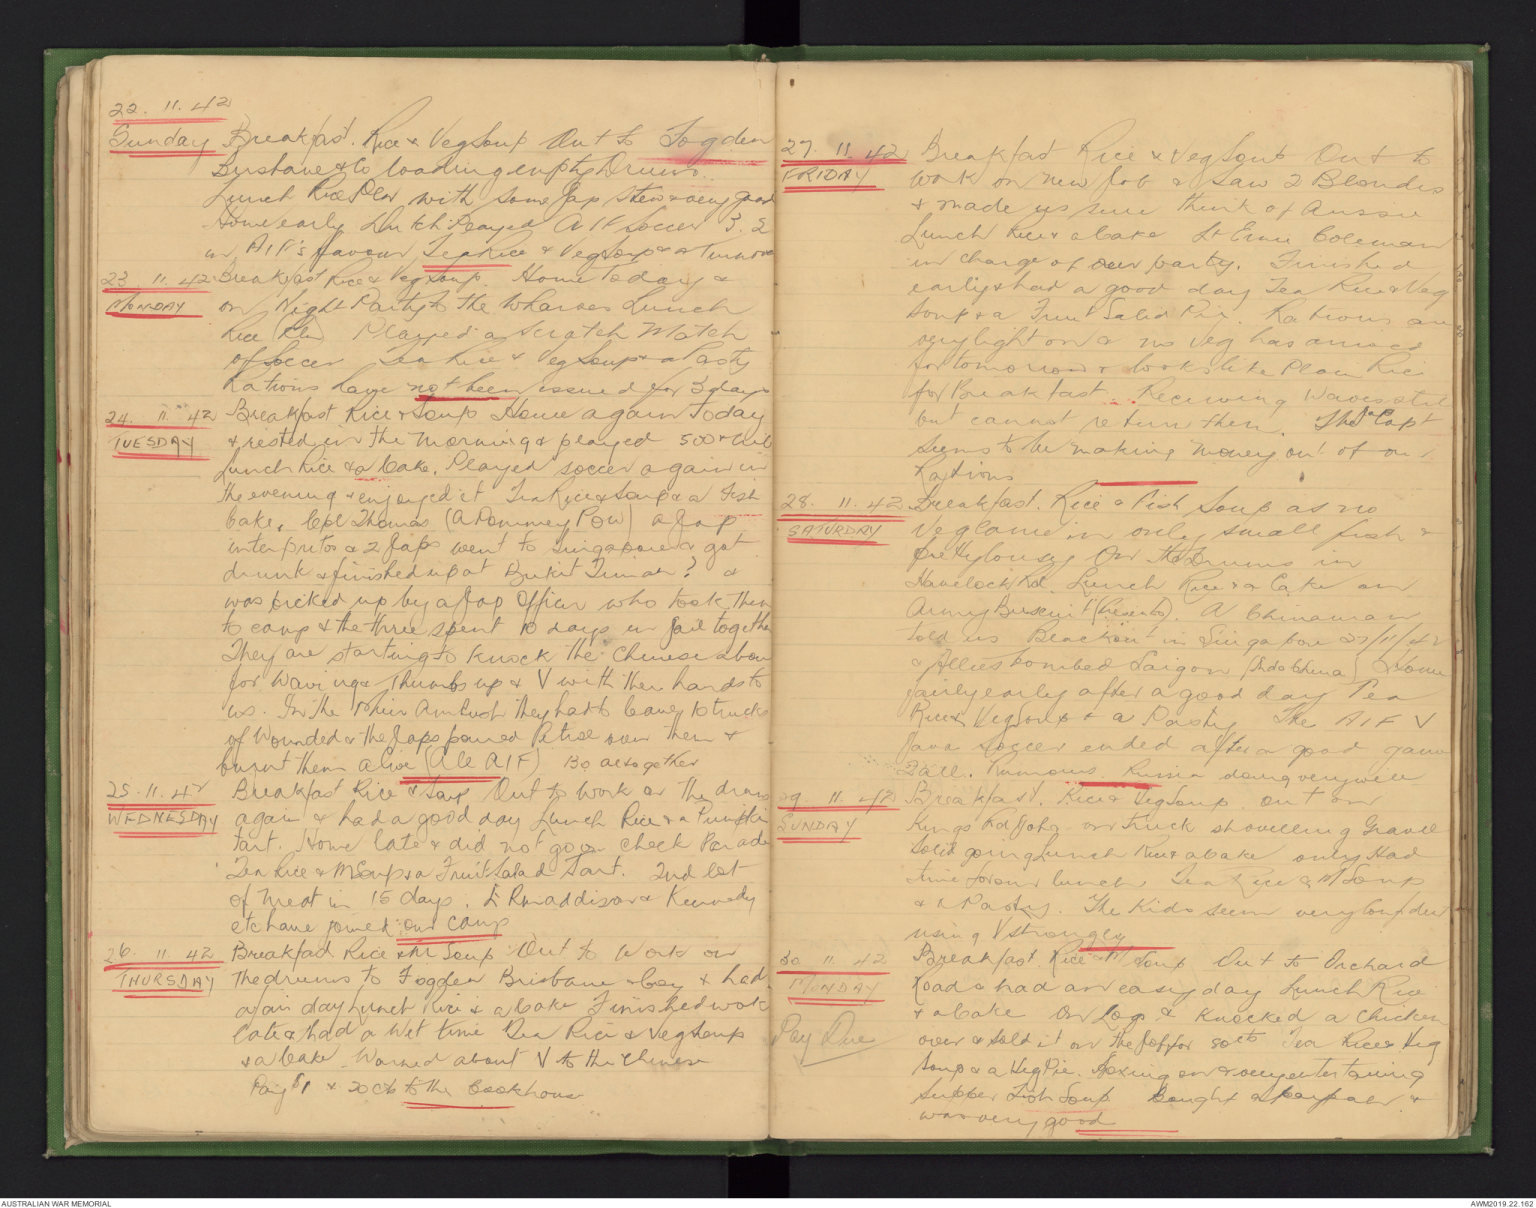 22. 11. 42
Sunday Breakfast. Rice & Veg Soup Out to Fogden
Brisbane & Co loading empty Drums.
Lunch Rice Plov with some Jap Stew & very good
Home early Dutch Played AIF Soccer 3. 2
in AIF's favour Tea Rice & Veg Soup & a Turnover
23. 11. 42 Breakfast Rice & Veg Soup. Home Today &
MONDAY on Night Party to the Wharves Lunch
Rice Played a Scratch Match
of Soccer Tea Rice & Veg Soup & a Pasty
Rations have not been issued for 3 days
24. 11. 42 Breakfast Rice & Soup Home again Today
TUESDAY & rested in the Morning & played 500 &
Lunch Rice & a Cake. Played soccer again in
the evening & enjoyed it Tea Rice & Soup & a Fish
Cake. Cpl Thomas (A Pommey POW) a Jap
interpritor & 2 Japs went to Singapore & got
drunk & finished up at Bukit Timah? &
was picked up by a Jap Officer who took them
to camp & the three spent 10 days in Jail together
They are starting to knock the Chinese about
for Waving & Thumbs up & V with their hands to
us. In the Muir Ambush they had to leave 10 trucks
of Wounded & the Japs poured Petrol over them &
burnt them alive (All AIF) 130 altogether
25. 11. 42 Breakfast Rice & Soup Out to Work on the drums
WEDNESDAY again & had a good day Lunch Rice & a Pumpkin
tart. Home late & did not go on check Parade
Tea Rice & M Soup & a Fruit Salad Tart. 2nd lot
of Meat in 15 days. Lt R Maddison & Kennedy
etc have joined our camp
26. 11. 42 Breakfast. Rice & M Soup Out to Work on
THURSDAY the drums to Fogden Brisbane & Coy & had
again day Lunch Rice & a Cake Finished work
late & had a Wet time Tea Rice & Veg Soup
& a Cake. Warned about V to the Chinese
Paid $1 & 20 cts to the Cookhouse
27. 11. 42 Breakfast Rice & Veg Soup Out to
FRIDAY Work on new Job & Saw 2 Blondes
& made us sure think of Aussie
Lunch Rice & a Cake Lt Ernie Coleman
in charge of our party. Finished
early & had a good day Tea Rice & Veg
Soup & a Fruit Salid Pie. Rations are
very light on & no Veg has arrived
for tomorrow & looks like Plain Rice
for Breakfast. Receiving Waves still
but cannot return them. The Capt
seems to be making money out of our
Rations
28. 11. 42 Breakfast. Rice & Fish Soup as no
SATURDAY Veg came in only small fish &
pretty lousy On the Drums in
Havelock Rd. Lunch Rice & a Cake an
Army Biscuit (Presento). A Chinaman
told us Blackout in Singapore 27/11/42
& Allies bombed Saigon (Indo China) Home
fairly early after a good day Tea
Rice & Veg Soup & a Pasty The AIF V
Java Soccer ended after a good game
2 all. Rumours. Russia doing very well
29. 11. 42 Breakfast. Rice & Veg Soup out on
SUNDAY Kings Rd Job on truck shovelling Gravel
Solid going Lunch Rice & a Cake only Had
time for our lunch Tea Rice & M Soup
& a Pasty. The Kids seem very confident
using V strongly
30 11. 42 Breakfast. Rice & M Soup Out to Orchard
MONDAY Road & had an easy day Lunch Rice
& a Cake On Logs & Knocked a Chicken
Pay Due over & sold it on the Job for 80 cts Tea Rice & Veg
Soup & a Veg Pie. Boxing on & very entertaining
Supper Fish Soup Bought a &
was very good
AUSTRALIAN WAR MEMORIAL
AWM2019.22.162